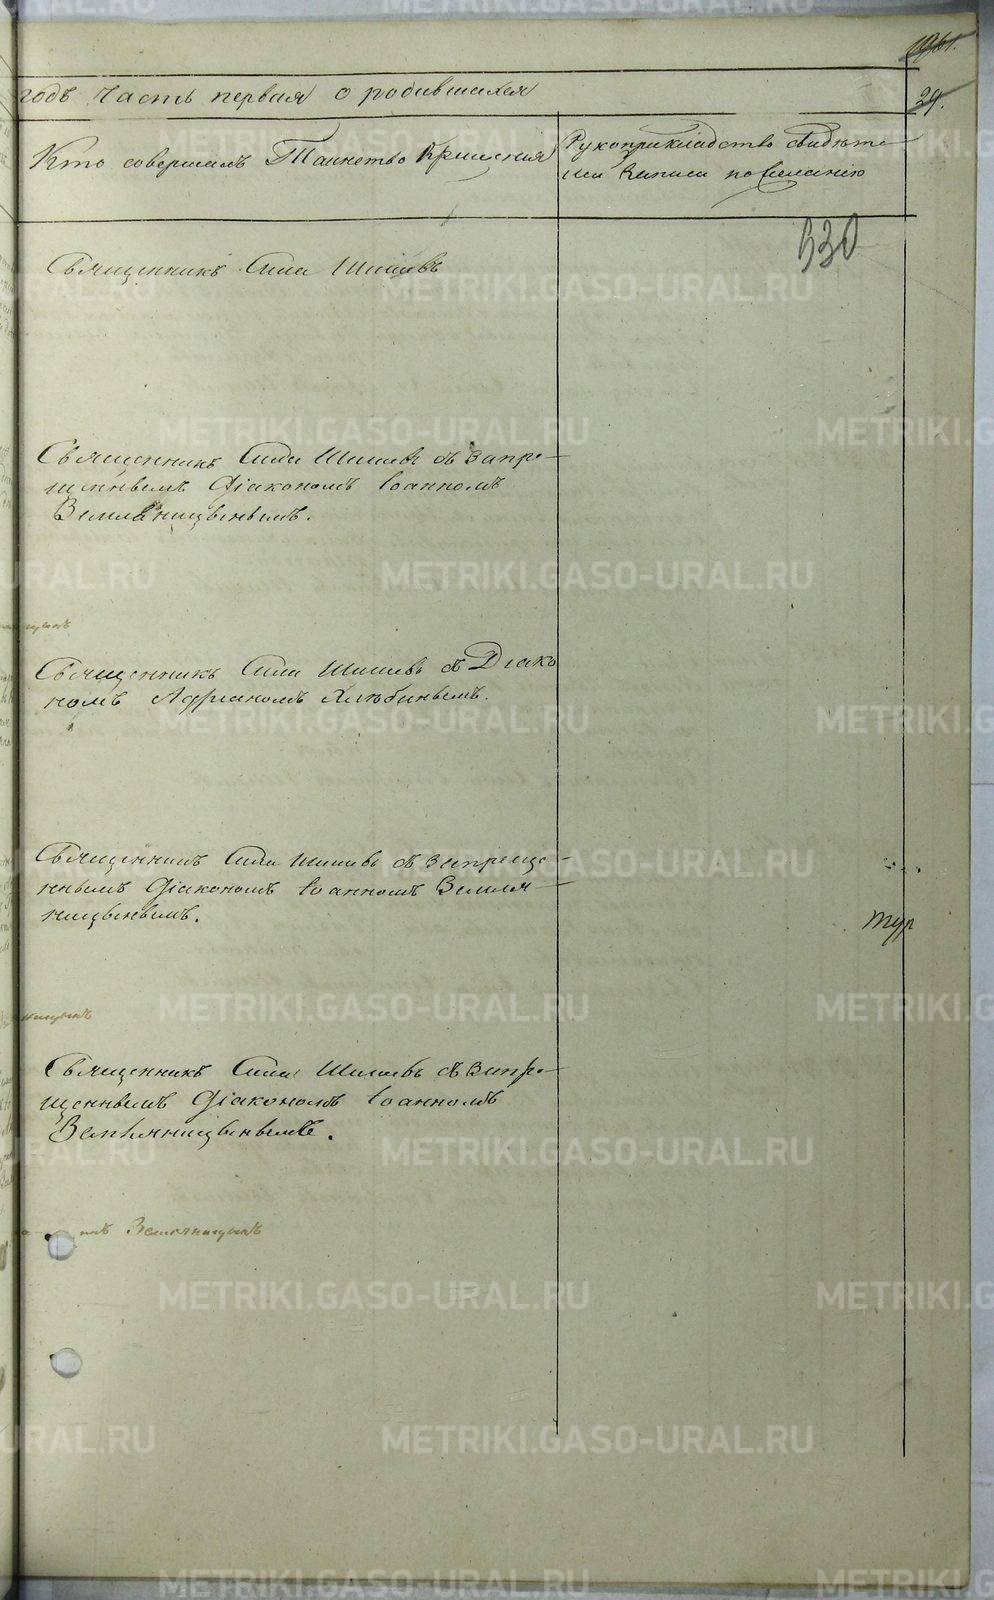 годъ Часть первая о родившихся
29.
Кто совершалъ Таинство Крещения
Рукоприкладство свидѣте-
лей Записи по желанію
330
Священникъ Сила Шишевъ
Священникъ Сила Шишевъ съ запре-
щеннымъ Діакономъ Іоанномъ
Земляницынымъ.
Священникъ Сила Шишевъ съ Діако
номъ Адріаномъ Хлюбинымъ.
Священникъ Сила Шишевъ съ запреще-
ннымъ Діакономъ Іоанномъ Земля-
ницынымъ.
тур
Священникъ Сила Шишевъ съ запре-
щеннымъ Діакономъ Іоанномъ
Земляницынымъ.
Земляницынъ
METRIKI.GASO-URAL.RU